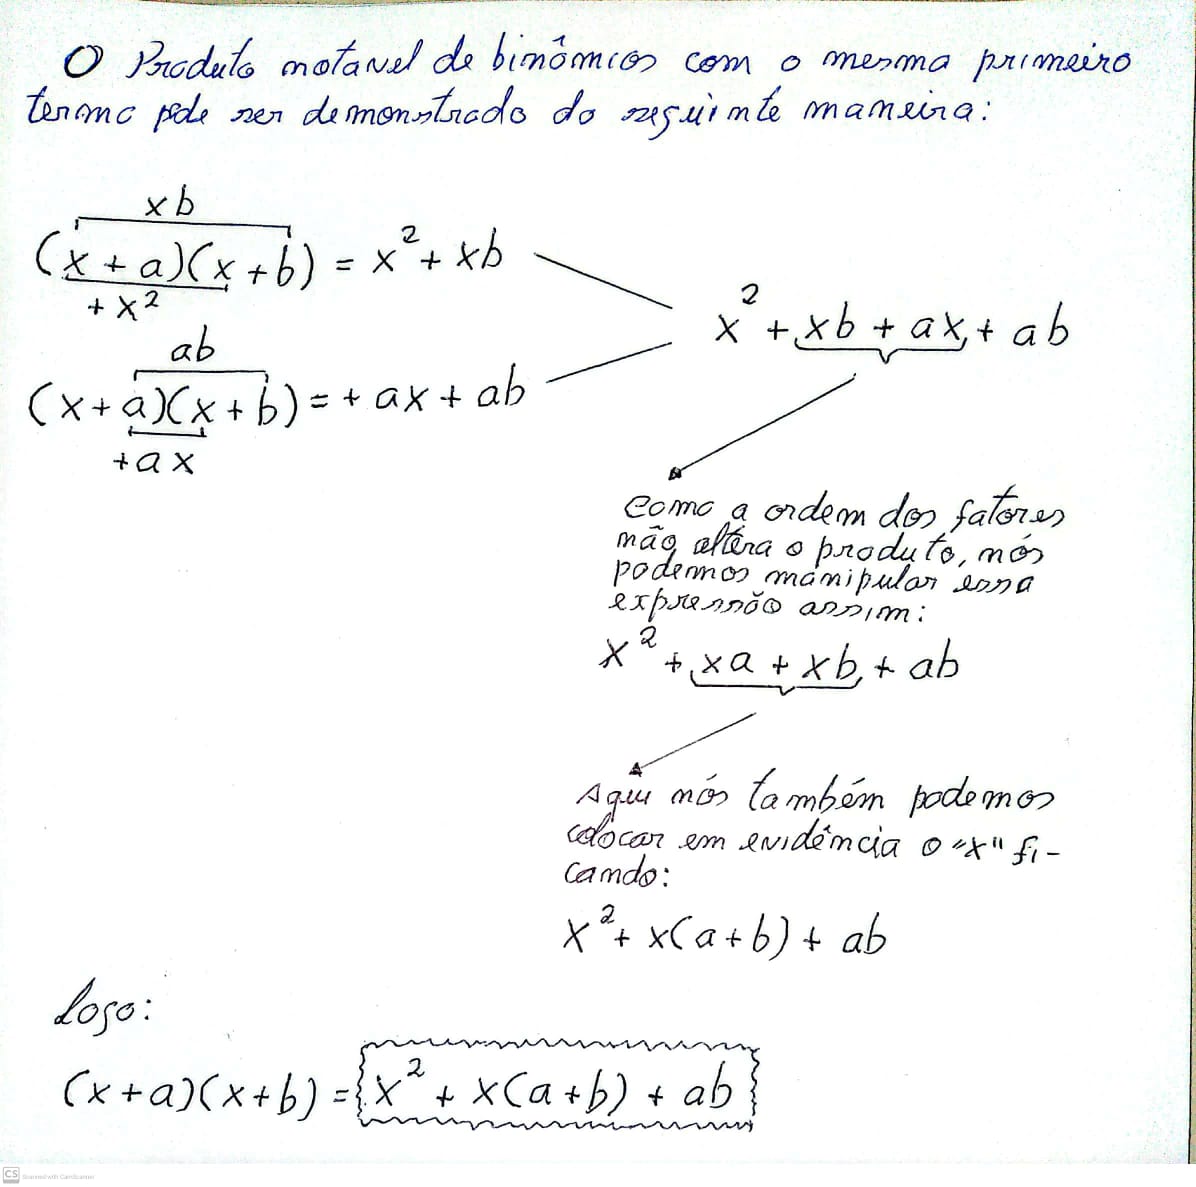 O Produto notavel de binômios com o mesmo primeiro
termo pode ser demonstrado do seguinte maneira:
xb
(x + a)(x + b) = x² + xb
+ x²
ab
(x + a)(x + b) = + ax + ab
+ax
x² + xb + ax + ab
Como a ordem dos fatores
não altera o produto, nós
podemos manipular essa
expressão assim:
x² + xa + xb + ab
Aqui nós também podemos
colocar em evidência o "x" fi-
cando:
x² + x(a + b) + ab
Logo:
(x + a)(x + b) = x² + x(a + b) + ab
CS Scanned with CamScanner